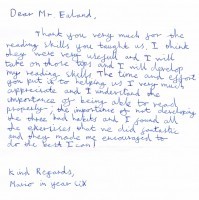 Dear Mr Edlund,
Thank you very much for the
reading skills you taught us. I think
they were very usefull and I will
take on those tips and I will develop
my reading skills The time and effort
you put in to helping us I very much
appreciate and I understand the
importance of being able to read
properly - the importance of not developing
the three bad habits and I found all
the exercises that we did fantastic
and they made me encouraged to
do the best I can!
Kind Regards,
Mario in year six